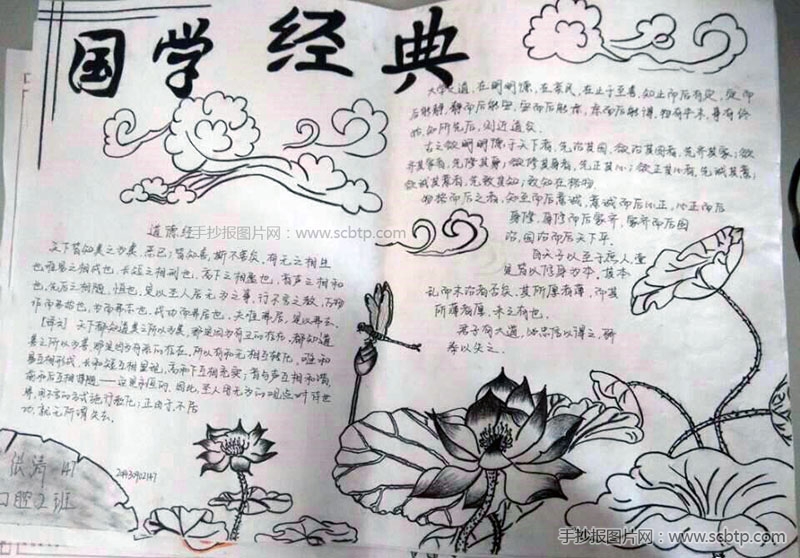 国学经典
大学之道,在明明德,在亲民,在止于至善。知止而后有定,定而
后能静,静而后能安,安而后能虑,虑而后能得。物有本末,事有终
始,知所先后,则近道矣。
古之欲明明德于天下者,先治其国,欲治其国者,先齐其家;欲
齐其家者,先修其身;欲修其身者,先正其心;欲正其心者,先诚其意;
欲诚其意者,先致其知;致知在格物。
而后意诚,意诚而后心正,心正而后
身修,身修而后家齐,家齐而后国
治,国治而后天下平。
自天子以至于庶人,壹
是皆以修身为本。其本
乱而末治者否矣,其所厚者薄,而其
所薄者厚,未之有也。
君子有大道,必忠信以得之,骄
泰以失之。
道德经
手抄报图片网:www.scbtp.com
天下皆知美之为美,恶已;皆知善,斯不善矣。有无之相生
也,难易之相成也,长短之相刑也,高下之相盈也,音声之相和
也,先后之相随,恒也。是以圣人居无为之事,行不言之教,万物
作而弗始也,为而弗志也,成功而弗居也。夫唯弗居,是以弗去。
【译文】天下都知道美之所以为美,那是因为有丑的存在。都知道
善之所以为善,那是因为有恶的存在。所以有和无相互转化,难和
易互相形成,长和短互相显现,高和下互相充实,音与声互相和谐,
前和后互相伴随——这是永恒的。因此,圣人用无为的观点对待世
事,用不言的方式进行教化;正由于不居
功,就无所谓失去。
涛 47
口腔2班
手抄报图片网:www.scbtp.com